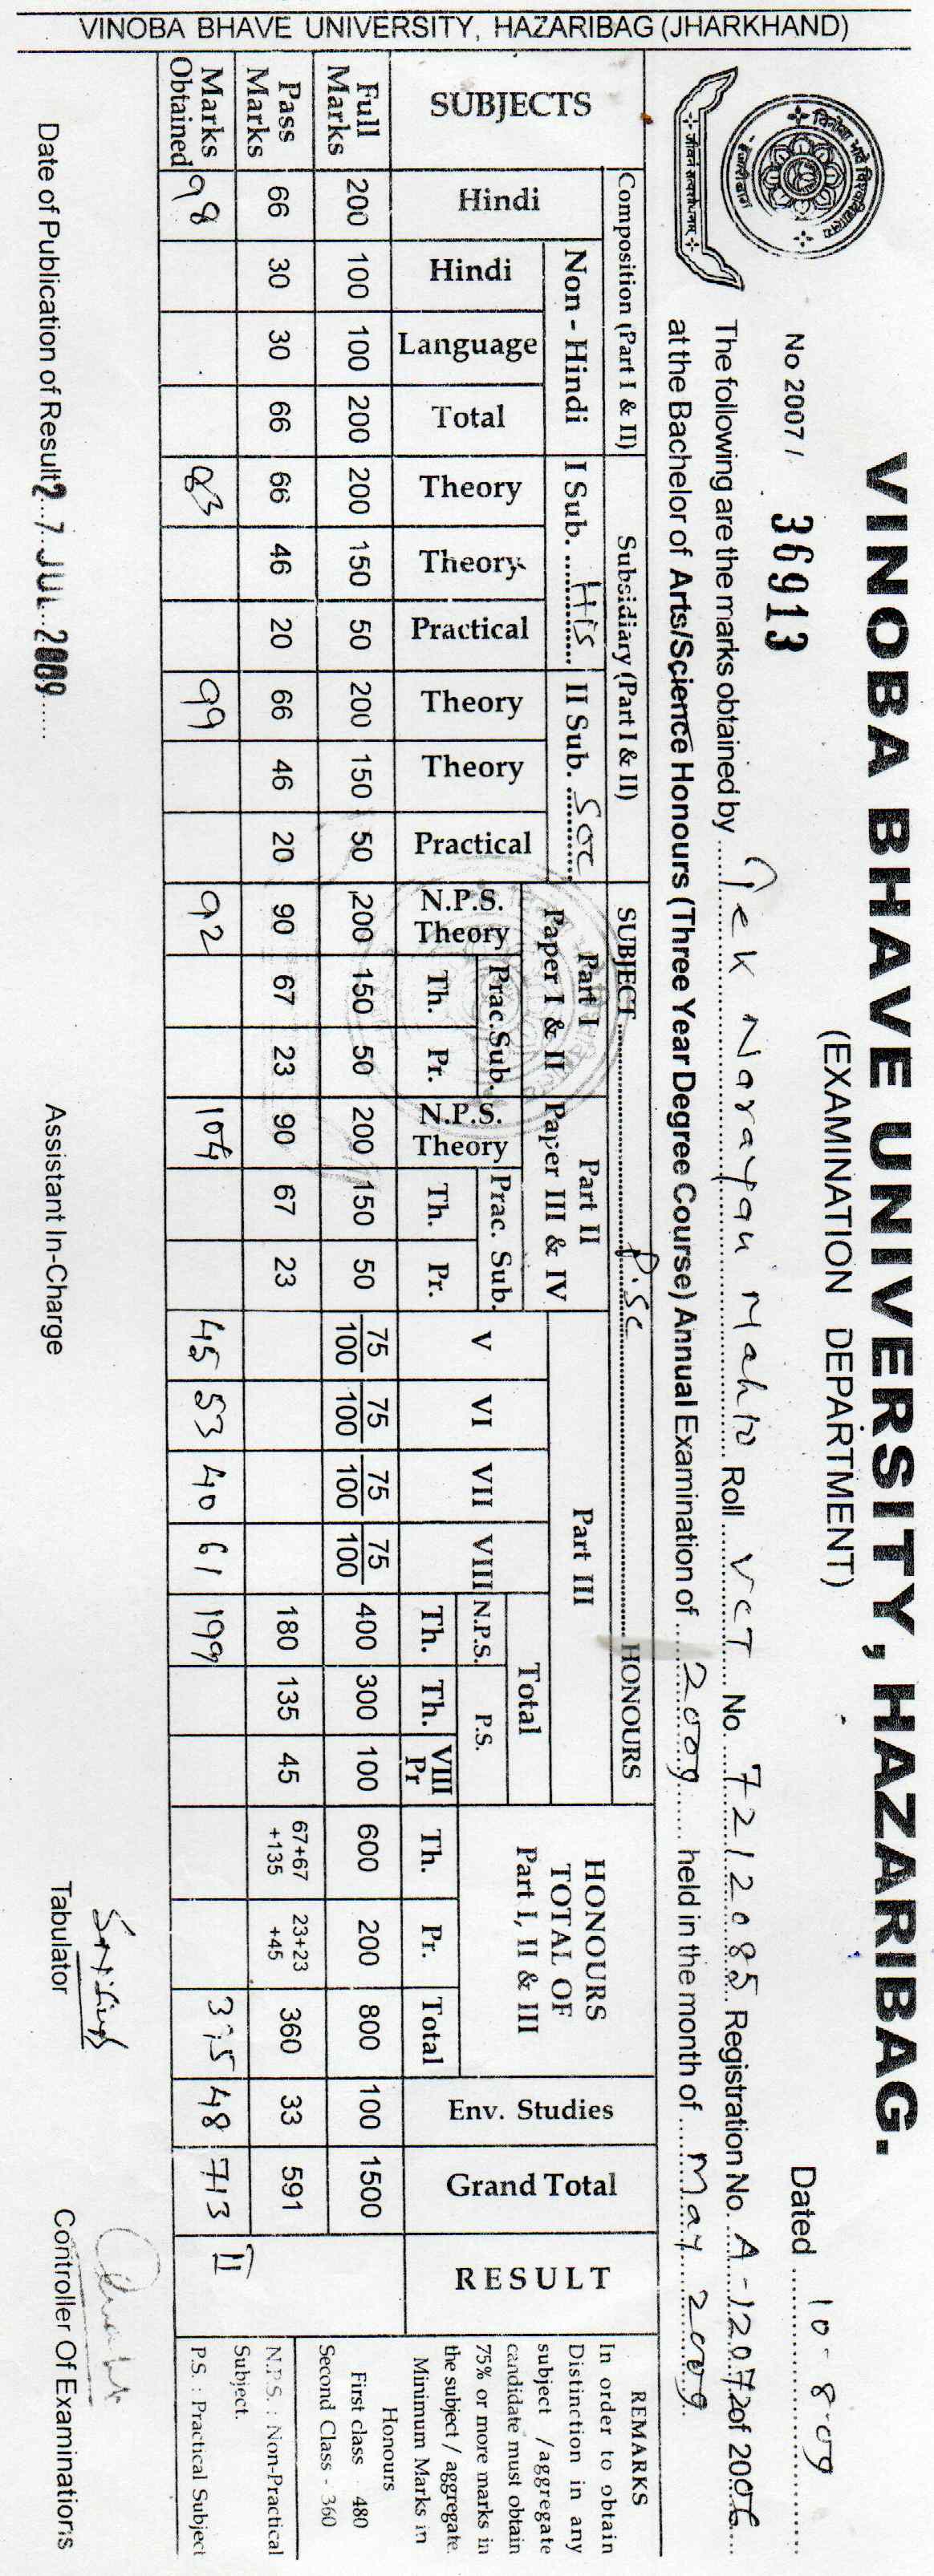 VINOBA BHAVE UNIVERSITY, HAZARIBAG.
(EXAMINATION DEPARTMENT)
No 2007 / 36913
Dated 10-8-09
The following are the marks obtained by Tek Narayan Mahto Roll VCT No. 7212085 Registration No. A-12072 of 2006
at the Bachelor of Arts/Science Honours (Three Year Degree Course) Annual Examination of 2009 held in the month of May 2009.
SUBJECTS
Composition (Part I & II)
Subsidiary (Part I & II)
SUBJECT P.Sc HONOURS
Hindi
Non - Hindi
Hindi
Language
Total
I Sub. His
Theory
Theory
Practical
II Sub. Soc
Theory
Theory
Practical
Part I
Paper I & II
N.P.S. Theory
Prac. Sub.
Th.
Pr.
Part II
Paper III & IV
N.P.S. Theory
Prac. Sub.
Th.
Pr.
Part III
V
VI
VII
VIII
Total
N.P.S.
Th.
P.S.
Th.
VIII Pr
HONOURS
TOTAL OF
Part I, II & III
Th.
Pr.
Total
Env. Studies
Grand Total
RESULT
Full Marks 200 100 100 200 200 150 50 200 150 50 200 150 50 200 150 50 75/100 75/100 75/100 75/100 400 300 100 600 200 800 100 1500
Pass Marks 66 30 30 66 66 46 20 66 46 20 90 67 23 90 67 23 180 135 45 67+67+135 23+23+45 360 33 591
Marks Obtained 98 83 99 92 104 45 53 40 61 199 395 48 713 II
REMARKS
In order to obtain
Distinction in any
subject / aggregate
candidate must obtain
75% or more marks in
the subject / aggregate.
Minimum Marks in
Honours
First class - 480
Second Class - 360
N.P.S. : Non-Practical
Subject.
P.S. : Practical Subject
Date of Publication of Result 27 JUL 2009
Assistant In-Charge
Tabulator
Controller Of Examinations
VINOBA BHAVE UNIVERSITY, HAZARIBAG (JHARKHAND)